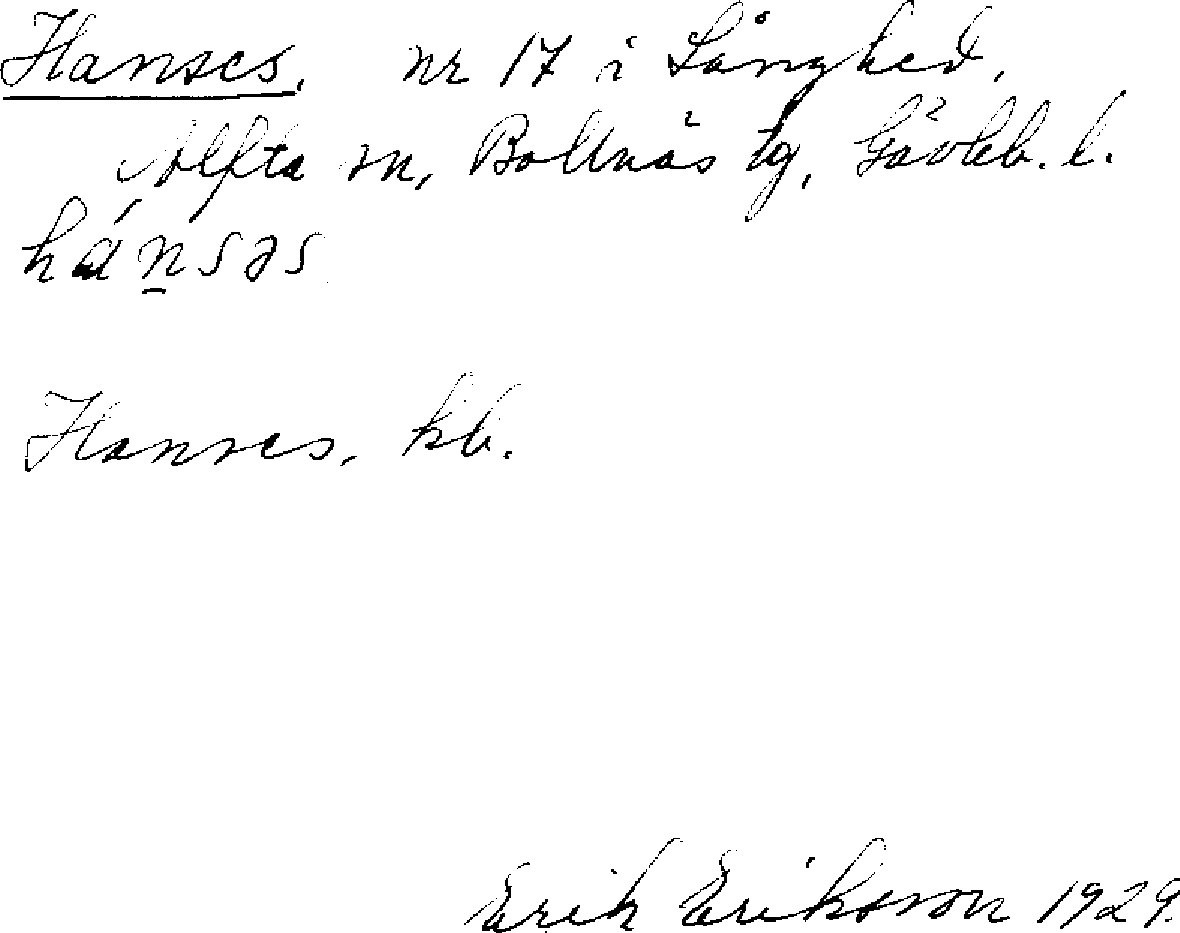 Hanses, nr 17 i Långhed,
Alfta sn, Bollnäs tg, Gävleb. l.
hánsəs
Hanses, kb.
Erik Eriksson 1929.